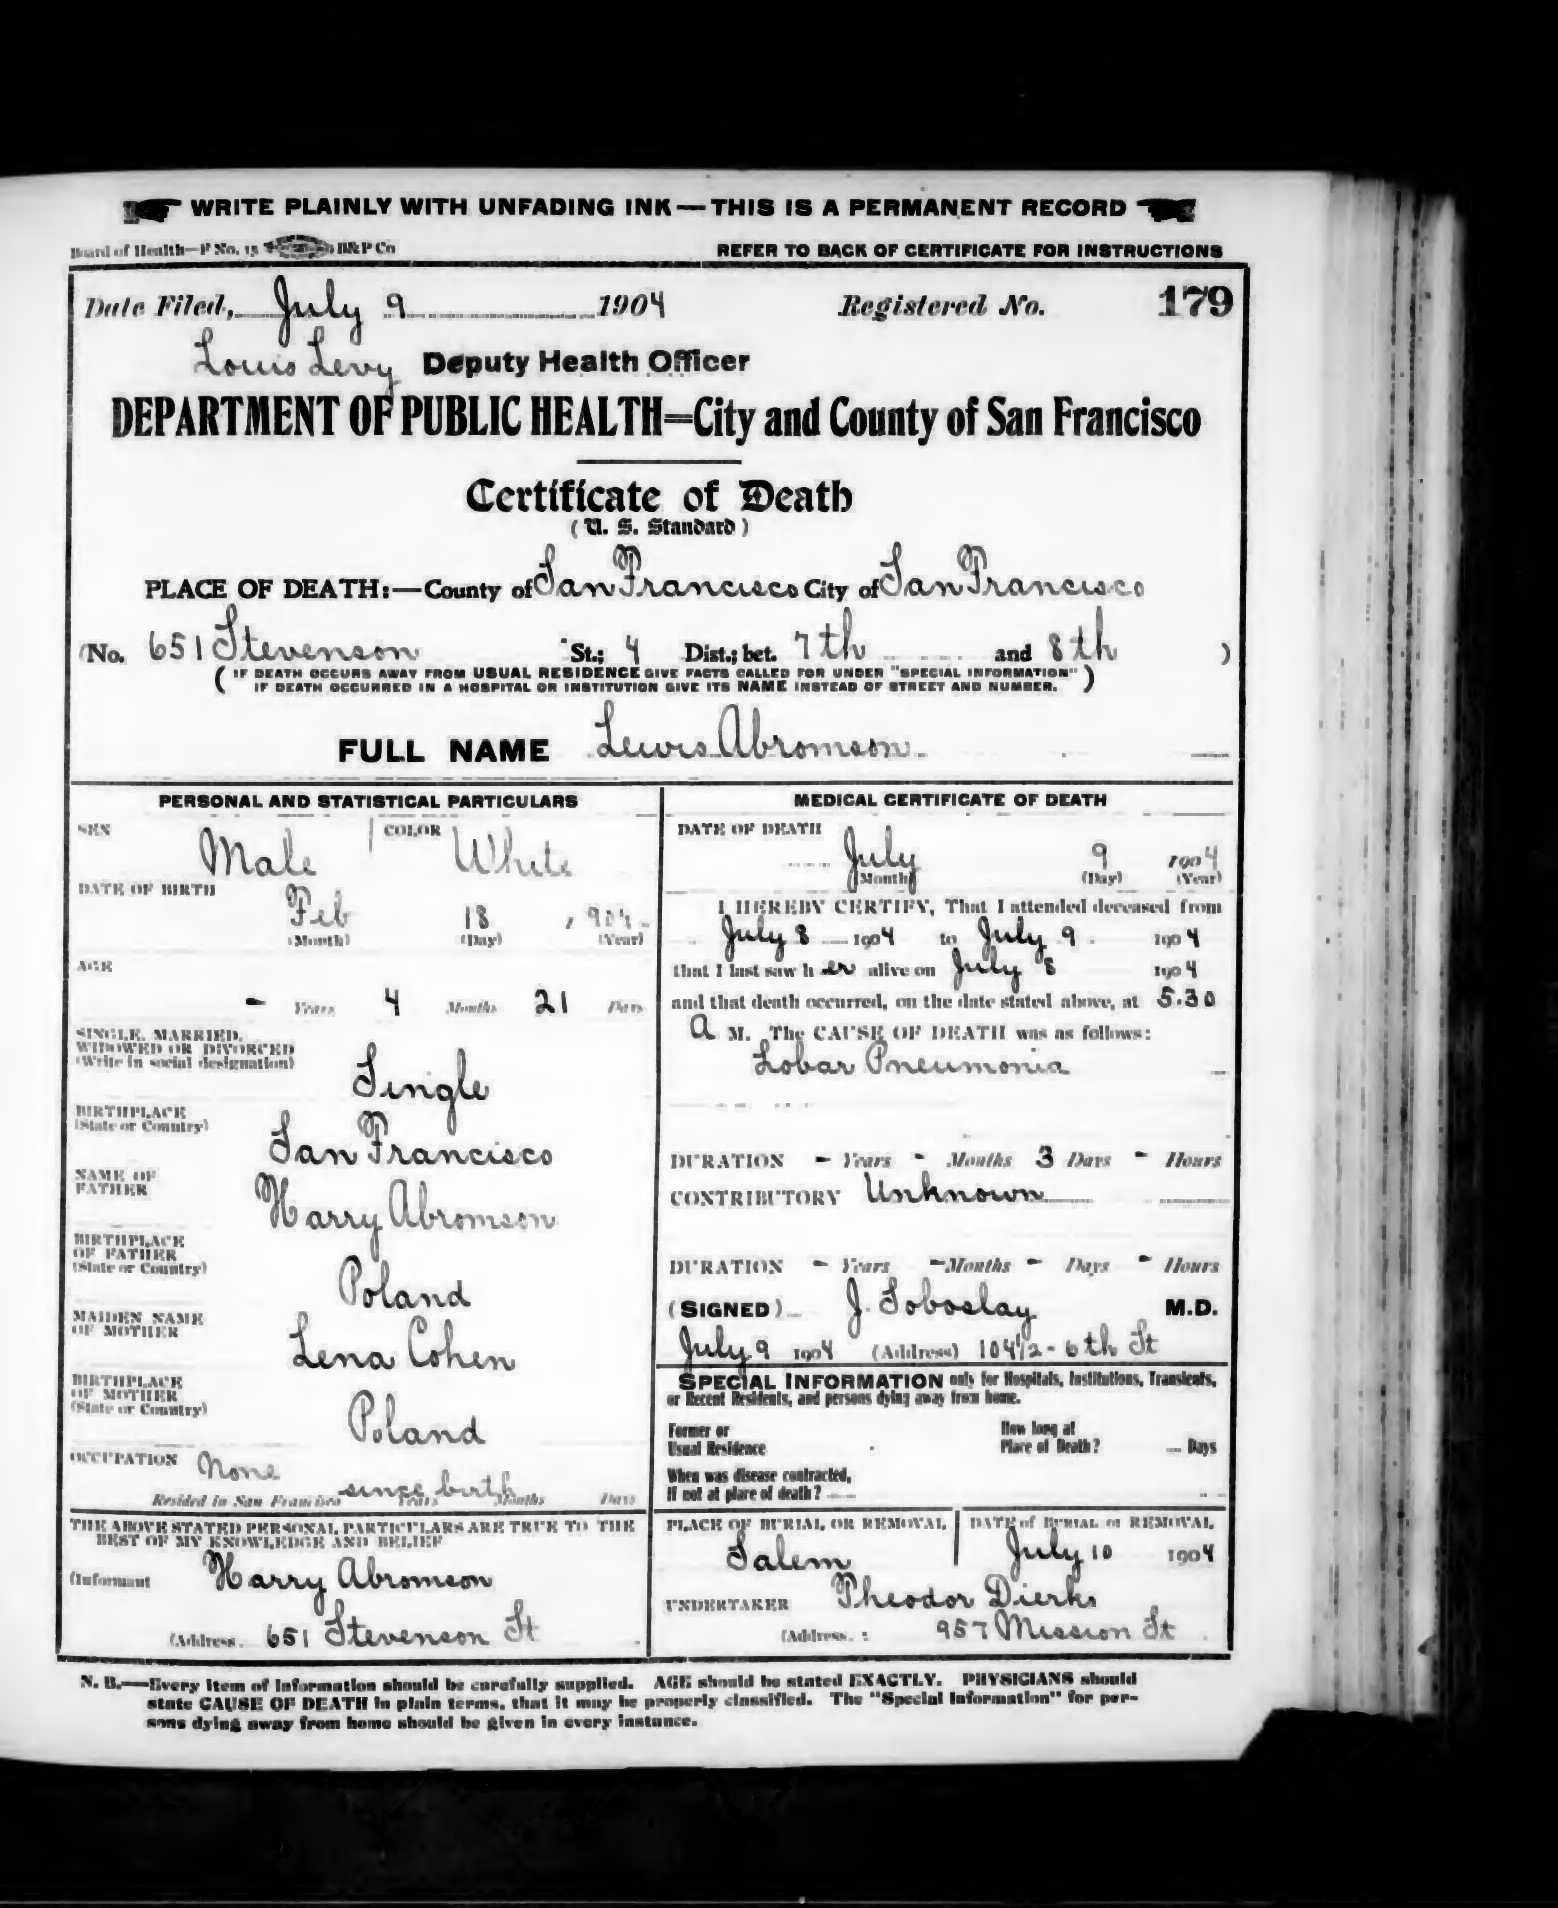 WRITE PLAINLY WITH UNFADING INK—THIS IS A PERMANENT RECORD
Board of Health—F No. 15 B&P Co
REFER TO BACK OF CERTIFICATE FOR INSTRUCTIONS
Date Filed, July 9 1904 Registered No. 179
Louis Levy Deputy Health Officer
DEPARTMENT OF PUBLIC HEALTH=City and County of San Francisco
Certificate of Death
(U. S. Standard)
PLACE OF DEATH:—County of San Francisco City of San Francisco
(No. 651 Stevenson St.; 4 Dist.; bet. 7th and 8th )
( IF DEATH OCCURS AWAY FROM USUAL RESIDENCE GIVE FACTS CALLED FOR UNDER "SPECIAL INFORMATION" )
IF DEATH OCCURRED IN A HOSPITAL OR INSTITUTION GIVE ITS NAME INSTEAD OF STREET AND NUMBER.
FULL NAME Lewis Abromson
PERSONAL AND STATISTICAL PARTICULARS
SEX Male COLOR White
DATE OF BIRTH
Feb 18 , 904
(Month) (Day) (Year)
AGE
- Years 4 Months 21 Days
SINGLE, MARRIED,
WIDOWED OR DIVORCED
(Write in social designation)
Single
BIRTHPLACE
(State or Country)
San Francisco
NAME OF
FATHER
Harry Abromson
BIRTHPLACE
OF FATHER
(State or Country)
Poland
MAIDEN NAME
OF MOTHER
Lena Cohen
BIRTHPLACE
OF MOTHER
(State or Country)
Poland
OCCUPATION None
Resided in San Francisco since birth Years Months Days
THE ABOVE STATED PERSONAL PARTICULARS ARE TRUE TO THE
BEST OF MY KNOWLEDGE AND BELIEF
(Informant Harry Abromson
(Address. 651 Stevenson St
MEDICAL CERTIFICATE OF DEATH
DATE OF DEATH
July 9 1904
(Month) (Day) (Year)
I HEREBY CERTIFY, That I attended deceased from
July 8 1904 to July 9 1904
that I last saw h er alive on July 8 1904
and that death occurred, on the date stated above, at 5.30
A M. The CAUSE OF DEATH was as follows:
Lobar Pneumonia
DURATION - Years - Months 3 Days - Hours
CONTRIBUTORY Unknown
DURATION - Years - Months - Days - Hours
(SIGNED) J. Soboslay M.D.
July 9 1904 (Address) 104 1/2 - 6th St
SPECIAL INFORMATION only for Hospitals, Institutions, Transients,
or Recent Residents, and persons dying away from home.
Former or
Usual Residence
How long at
Place of Death? Days
When was disease contracted,
If not at place of death?
PLACE OF BURIAL OR REMOVAL
Salem
DATE of BURIAL or REMOVAL
July 10 1904
UNDERTAKER Theodor Dierks
(Address. : 957 Mission St
N. B.—Every item of information should be carefully supplied. AGE should be stated EXACTLY. PHYSICIANS should
state CAUSE OF DEATH in plain terms, that it may be properly classified. The "Special Information" for per-
sons dying away from home should be given in every instance.